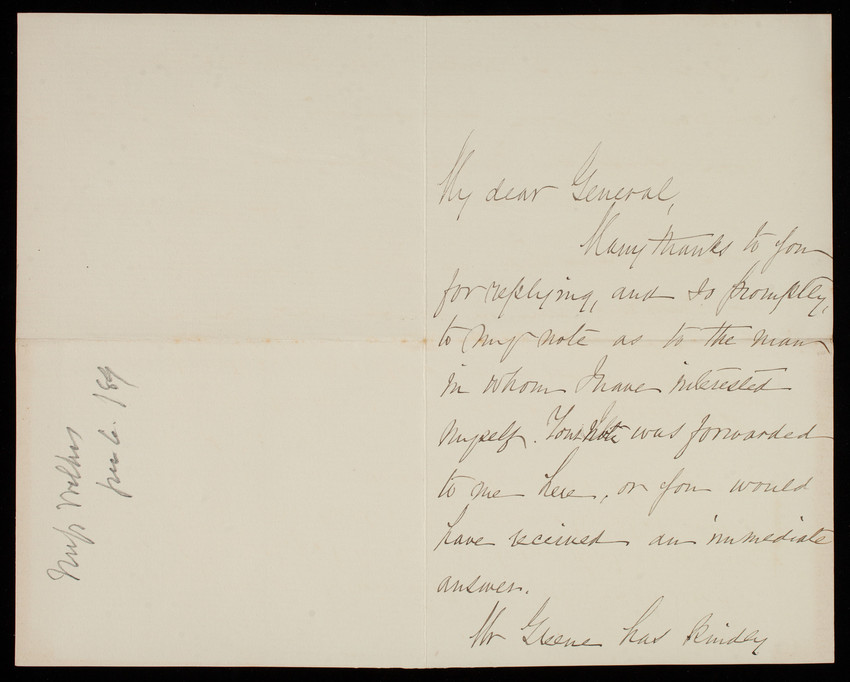 My dear General,
Many thanks to you
for replying, and so promptly,
to my note as to the man
in whom I have interested
myself. Your note was forwarded
to me here, or you would
have received an immediate
answer.
Mr Greene has kindly
Miss
189